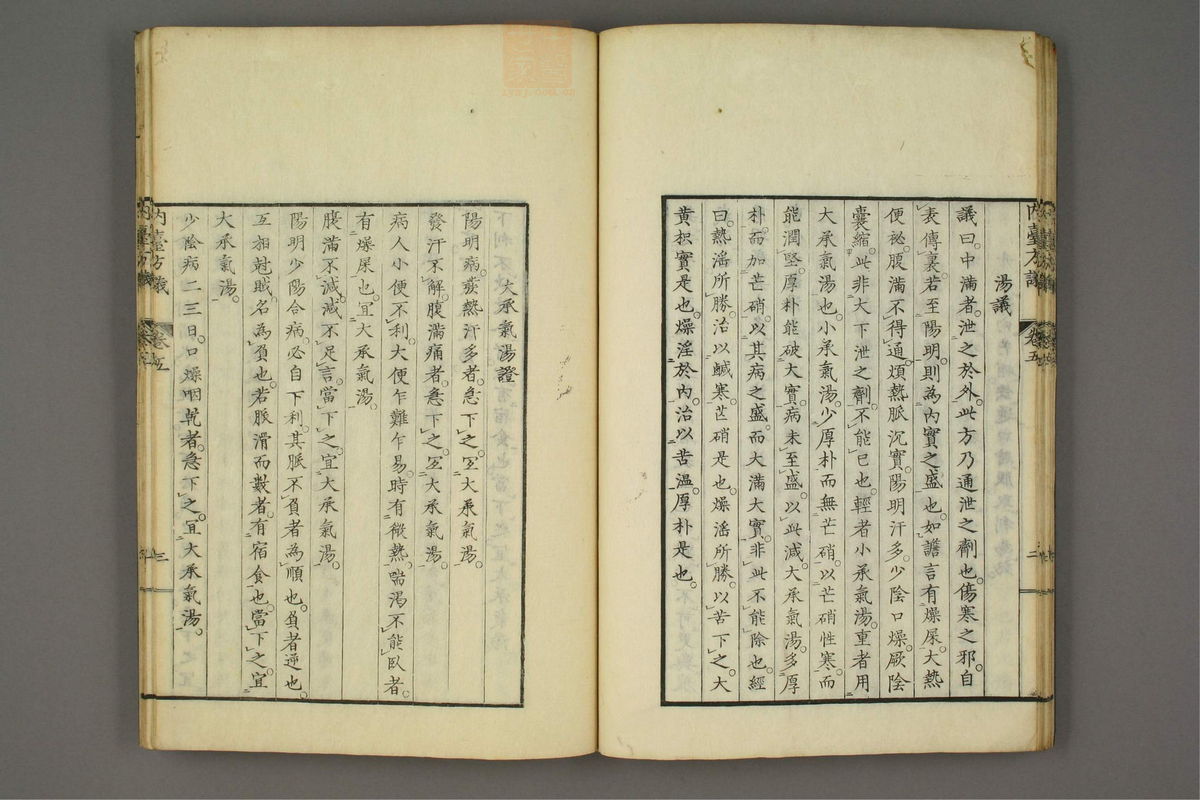 湯議
議曰。中滿者。泄之於外。此方乃通泄之劑也。傷寒之邪。自
表傳裏。若至陽明。則為內實之盛也。如譫言有燥屎。大熱
便祕。腹滿不得通。煩熱脈沉實。陽明汗多。少陰口燥。厥陰
囊縮。此非大下泄之劑。不能已也。輕者小承氣湯。重者用
大承氣湯也。小承氣湯。少厚朴而無芒硝。以芒硝性寒。而
能潤堅。厚朴能破大實。病未至盛。以此減。大承氣湯。多厚
朴。而加芒硝。以其病之盛。而大滿大實。非此不能除也。經
曰。熱淫所勝。治以鹹寒。芒硝是也。燥淫所勝。以苦下之。大
黃枳實是也。燥淫於內。治以苦溫。厚朴是也。
內臺方議
卷五
二
大承氣湯證
陽明病。發熱汗多者。急下之。宜大承氣湯。
發汗不解。腹滿痛者。急下之。宜大承氣湯。
病人小便不利。大便乍難乍易。時有微熱。喘渴不能臥者。
有燥屎也。宜大承氣湯。
腹滿不減。減不足言。當下之。宜大承氣湯。
陽明少陽合病。必自下利。其脈不負者為順也。負者逆也。
互相尅賊。名為負也。若脈滑而數者。有宿食也。當下之。宜
大承氣湯。
少陰病二三日。口燥咽乾者。急下之。宜大承氣湯。
內臺方議
卷五
三